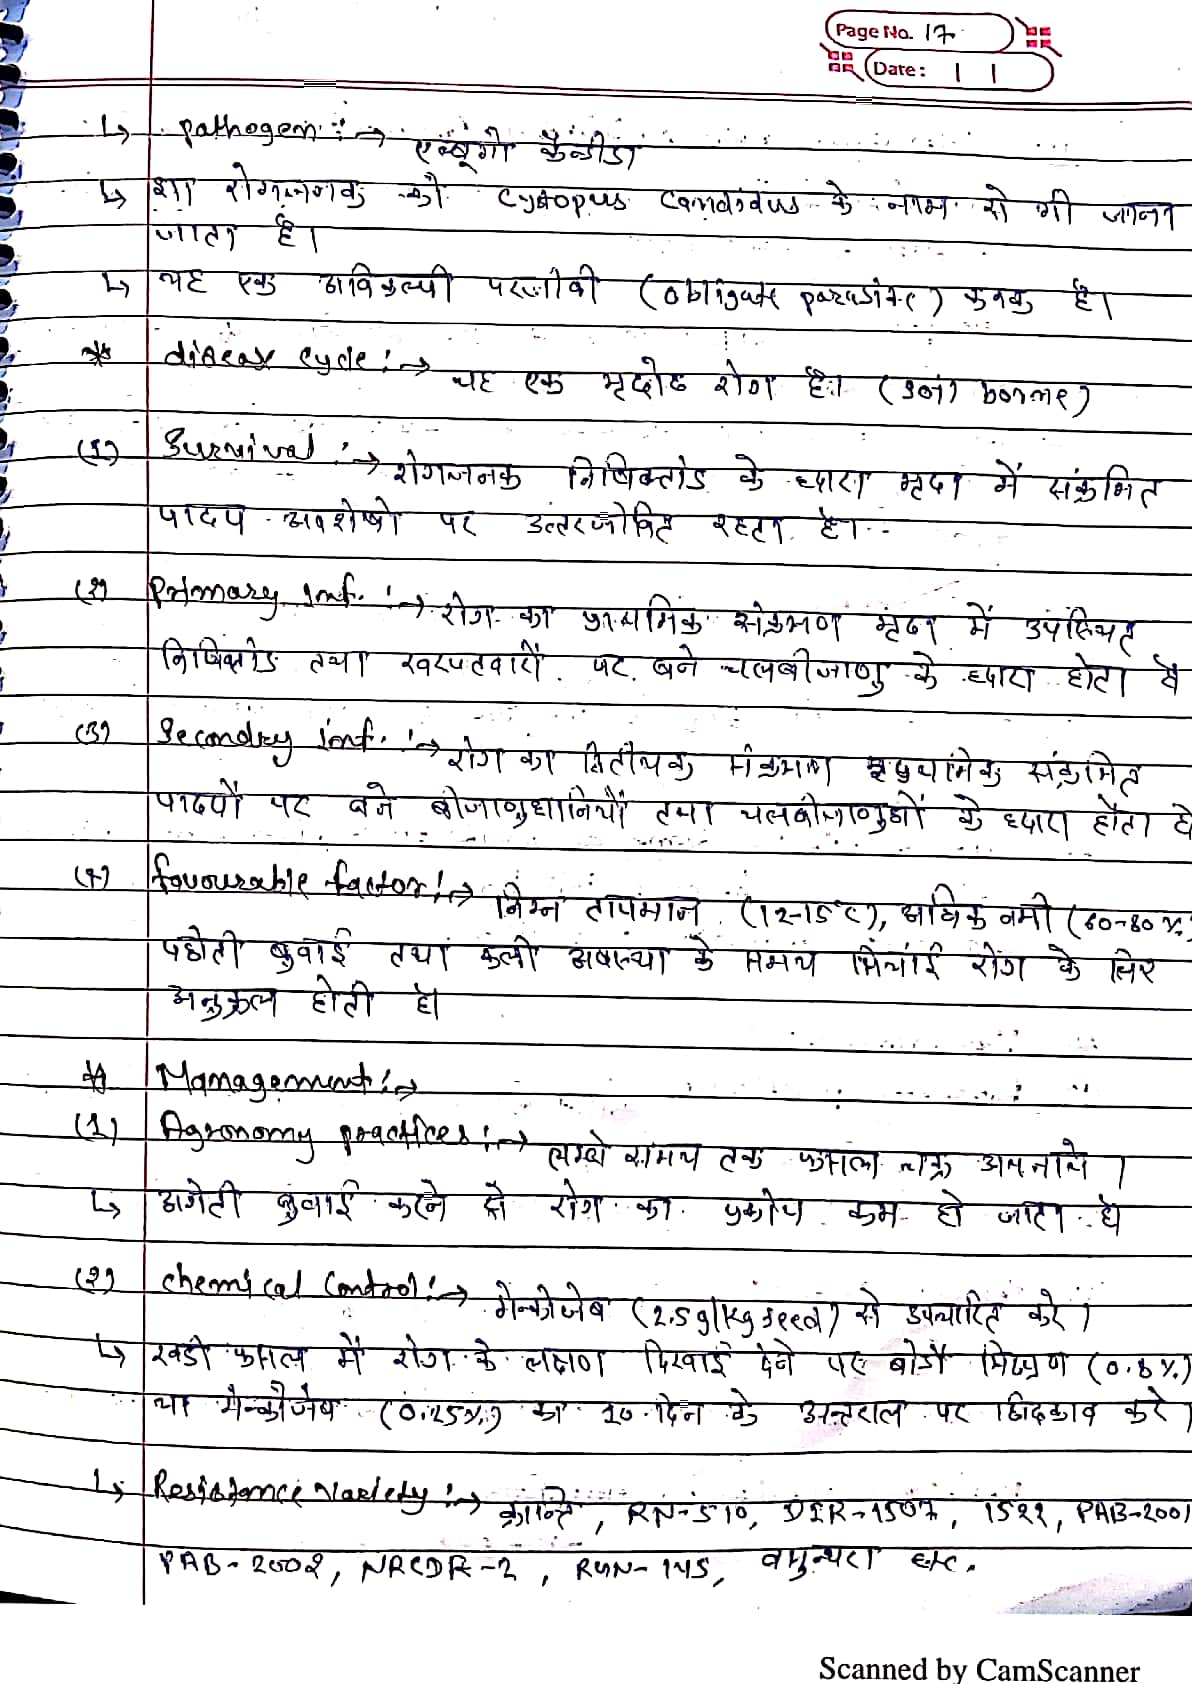 Page No. 17
Date: | |
↳ pathogen :→ एल्बूगो कैन्डीडा
↳ इस रोगजनक को Cystopus Candidus के नाम से भी जाना
जाता है।
↳ यह एक अविकल्पी परजीवी (obligate parasite) कवक है।
* disease cycle :→ यह एक मृदोढ रोग है। (soil borne)
(1) Survival :→ रोगजनक निषिक्तांड के द्वारा मृदा में संक्रमित
पादप अवशेषो पर उत्तरजीवित रहता है।
(2) Primary inf. :→ रोग का प्राथमिक संक्रमण मृदा में उपस्थित
निषिक्तांड तथा खरपतवारों पर बने चलबीजाणु के द्वारा होता है
(3) Secondry inf. :→ रोग का द्वितीयक संक्रमण प्राथमिक संक्रमित
पादपों पर बने बीजाणुधानियों तथा चलबीजाणुओं के द्वारा होता है
(4) favourable factor :→ निम्न तापमान (12-15°c), अधिक नमी (60-80%)
पछेती बुवाई तथा कली अवस्था के समय सिंचाई रोग के लिए
अनुकूल होती है।
* Management :→
(1) Agronomy practices :→ लम्बे समय तक फसल चक्र अपनाये।
↳ अगेती बुवाई करने से रोग का प्रकोप कम हो जाता है
(2) chemical Control :→ मेन्कोजेब (2.5g/kg seed) से उपचारित करे।
↳ खडी फसल में रोग के लक्षण दिखाई देने पर बोर्डो मिश्रण (0.8%)
या मेन्कोजेब (0.25%) का 10 दिन के अन्तराल पर छिडकाव करे।
↳ Resistance variety :→ क्रान्ति, RN-510, DIR-1507, 1522, PAB-2001
PAB-2002, NRCDR-2, RGN-145, वसुन्धरा etc.
Scanned by CamScanner